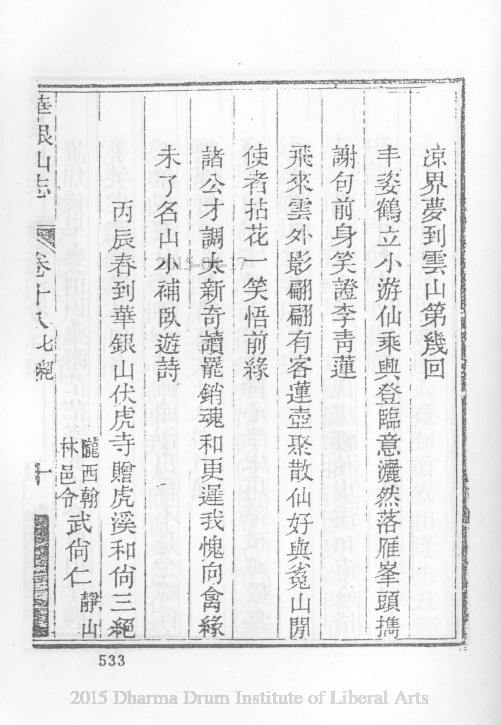 涼界夢到雲山第幾回
丰姿鶴立小游仙乘興登臨意灑然落雁峯頭擕
謝句前身笑證李青蓮
飛來雲外影翩翩有客蓮壺聚散仙好與嵬山閒
使者拈花一笑悟前緣
諸公才調大新奇讀罷銷魂和更遲我愧向禽緣
未了名山小補臥遊詩
丙辰春到華銀山伏虎寺贈虎溪和尙三絕
隴西翰林邑令武尙仁靜山
華銀山志 卷十八 七絕 十
533
2015 Dharma Drum Institute of Liberal Arts